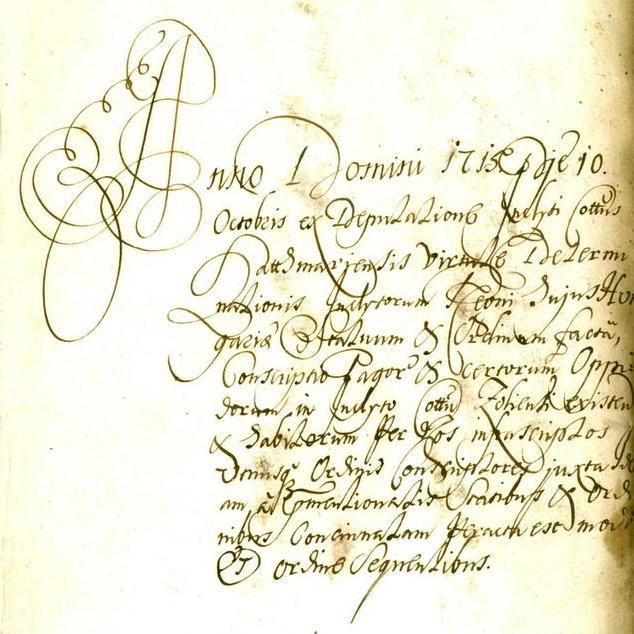 Anno Domini 1715 Die 10.
Octobris ex Deputatione Inclyti Cottus
Szatthmariensis virtute Determi
nationis Inclytorum Regni Hujus Hun
gariæ Statuum & Ordinum facta,
Conscriptio Pagor & certorum Oppi
dorum in Inclyto Cottu existen
& habitorum Per Nos infrascriptos
Ordinis Conscriptores juxta
& Ordi
nibus Concinnatam Peracta est modo
Et ordine Sequentibus.